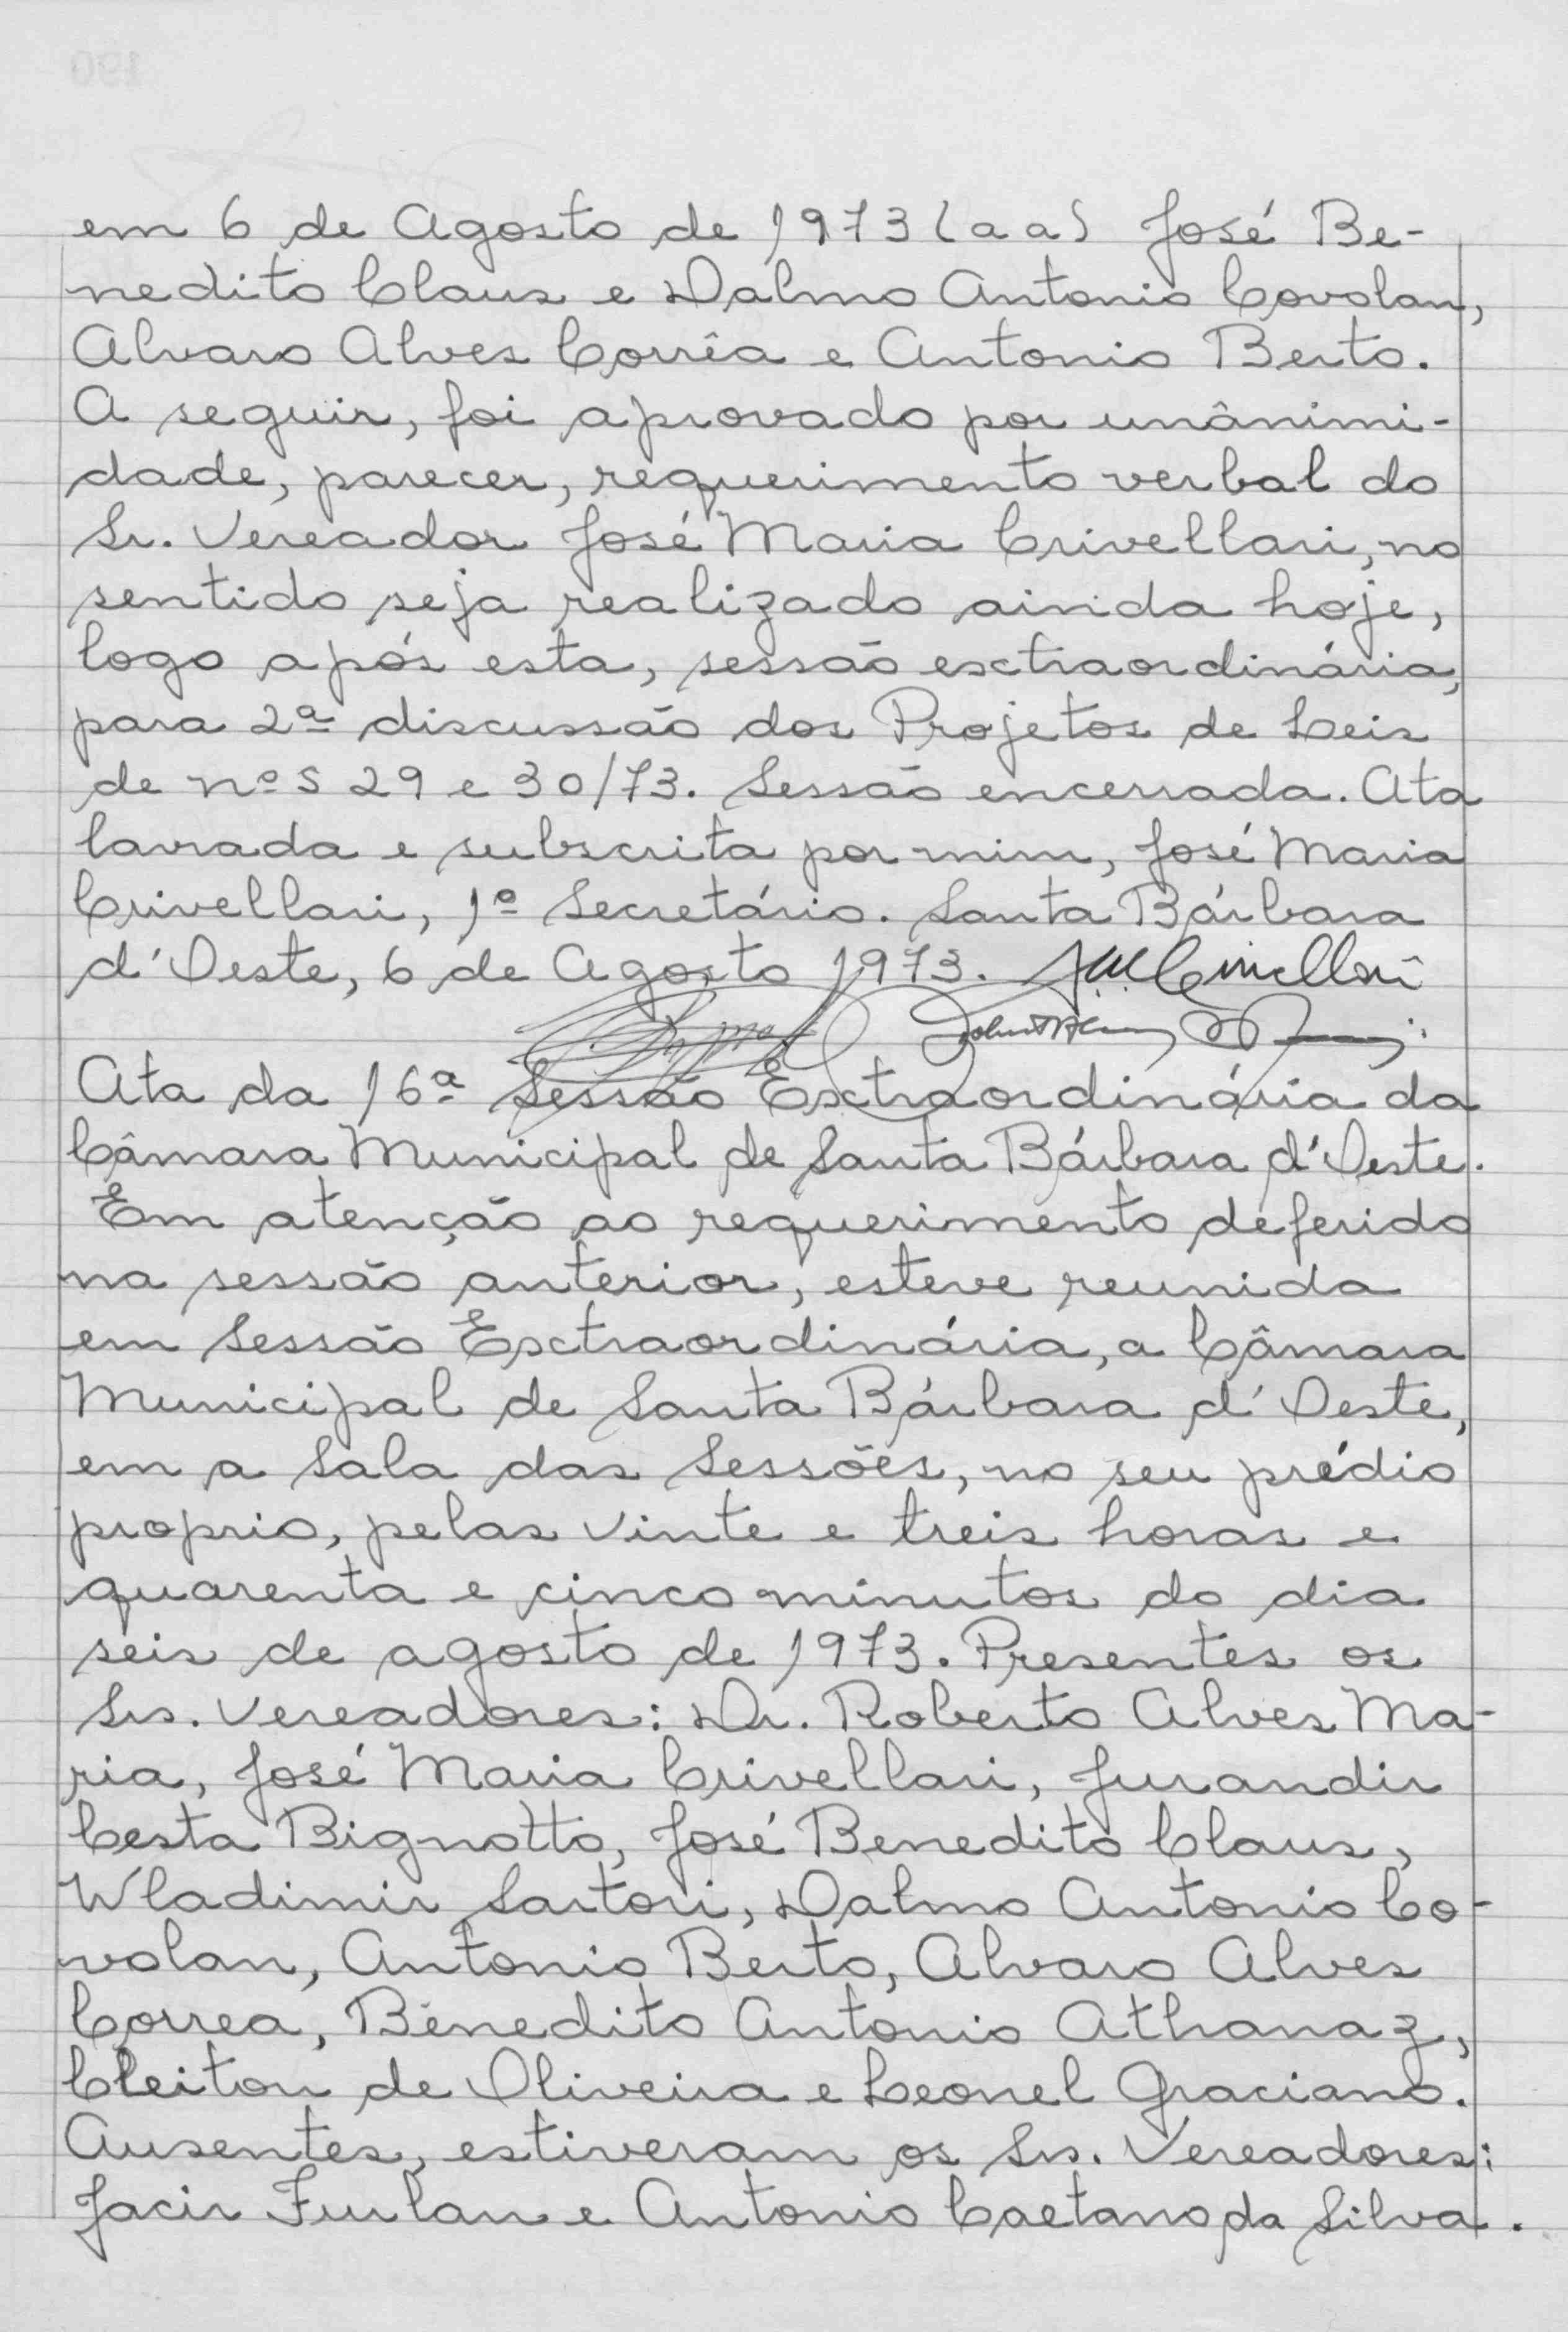 em 6 de Agosto de 1973 (a a) José Be-
nedito Claus e Dalmo Antonio Covolan,
Alvaro Alves Corrêa e Antonio Berto.
A seguir, foi aprovado por unânimi-
dade, parecer, requerimento verbal do
Sr. Vereador José Maria Crivellari, no
sentido seja realizado ainda hoje,
logo após esta, sessão extraordinária,
para 2ª discussão dos Projetos de Leis
de nºs 29 e 30/73. Sessão encerrada. Ata
lavrada e subscrita por mim, José Maria
Crivellari, 1º Secretário. Santa Bárbara
d'Oeste, 6 de Agosto 1973. J.M. Crivellari
Ata da 16ª Sessão Extraordinária da
Câmara Municipal de Santa Bárbara d'Oeste.
Em atenção ao requerimento deferido
na sessão anterior, esteve reunida
em Sessão Extraordinária, a Câmara
Municipal de Santa Bárbara d'Oeste,
em a Sala das Sessões, no seu prédio
proprio, pelas vinte e treis horas e
quarenta e cinco minutos do dia
seis de agosto de 1973. Presentes os
Srs. Vereadores: Dr. Roberto Alves Ma-
ria, José Maria Crivellari, Jurandir
Cesta Bignotto, José Benedito Claus,
Wladimir Sartori, Dalmo Antonio Co-
volan, Antonio Berto, Alvaro Alves
Correa, Benedito Antonio Athanaz,
Cleiton de Oliveira e Leonel Graciano.
Ausentes, estiveram os Srs. Vereadores:
Jacir Furlan e Antonio Caetano da Silva.